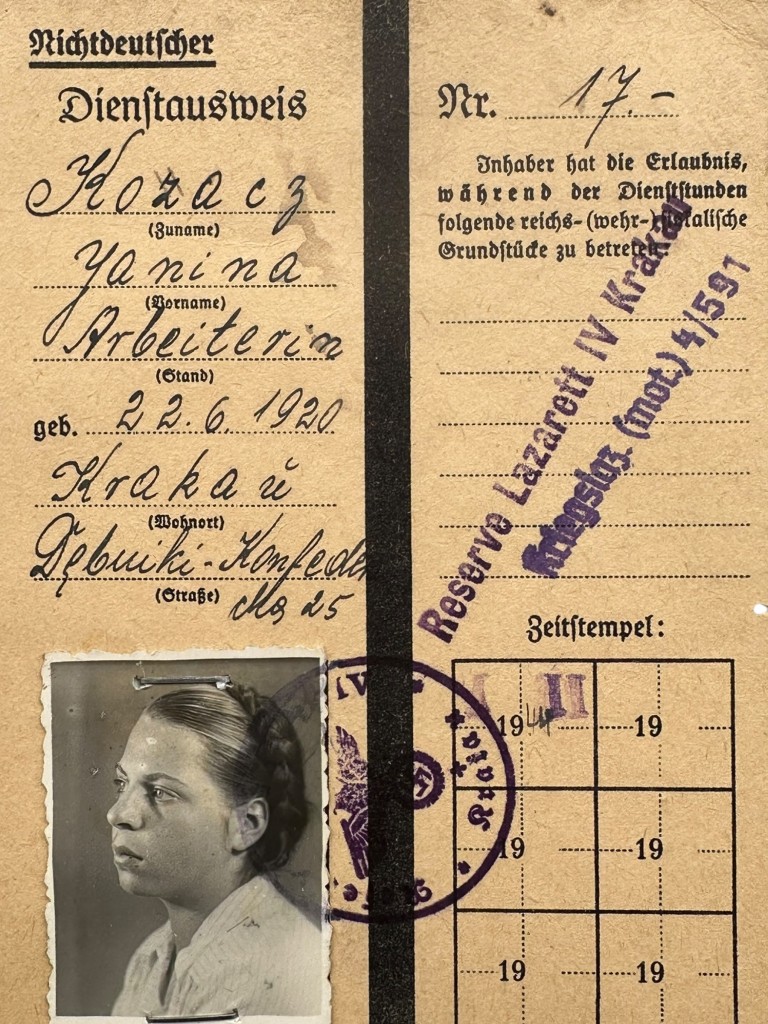 Nichtdeutscher
Dienstausweis
Kozacz
(Zuname)
Janina
(Vorname)
Arbeiterin
(Stand)
geb. 22.6.1920
Krakau
(Wohnort)
Dębniki-Konfeder
(Straße)
25
Nr. 17.-
Inhaber hat die Erlaubnis,
während der Dienststunden
folgende reichs-(wehr-)fiskalische
Grundstücke zu betreten:
Reserve Lazarett IV Krakau
Kriegslaz. (mot.) 4/591
Zeitstempel:
I II
1944 19
19 19
19 19
IV